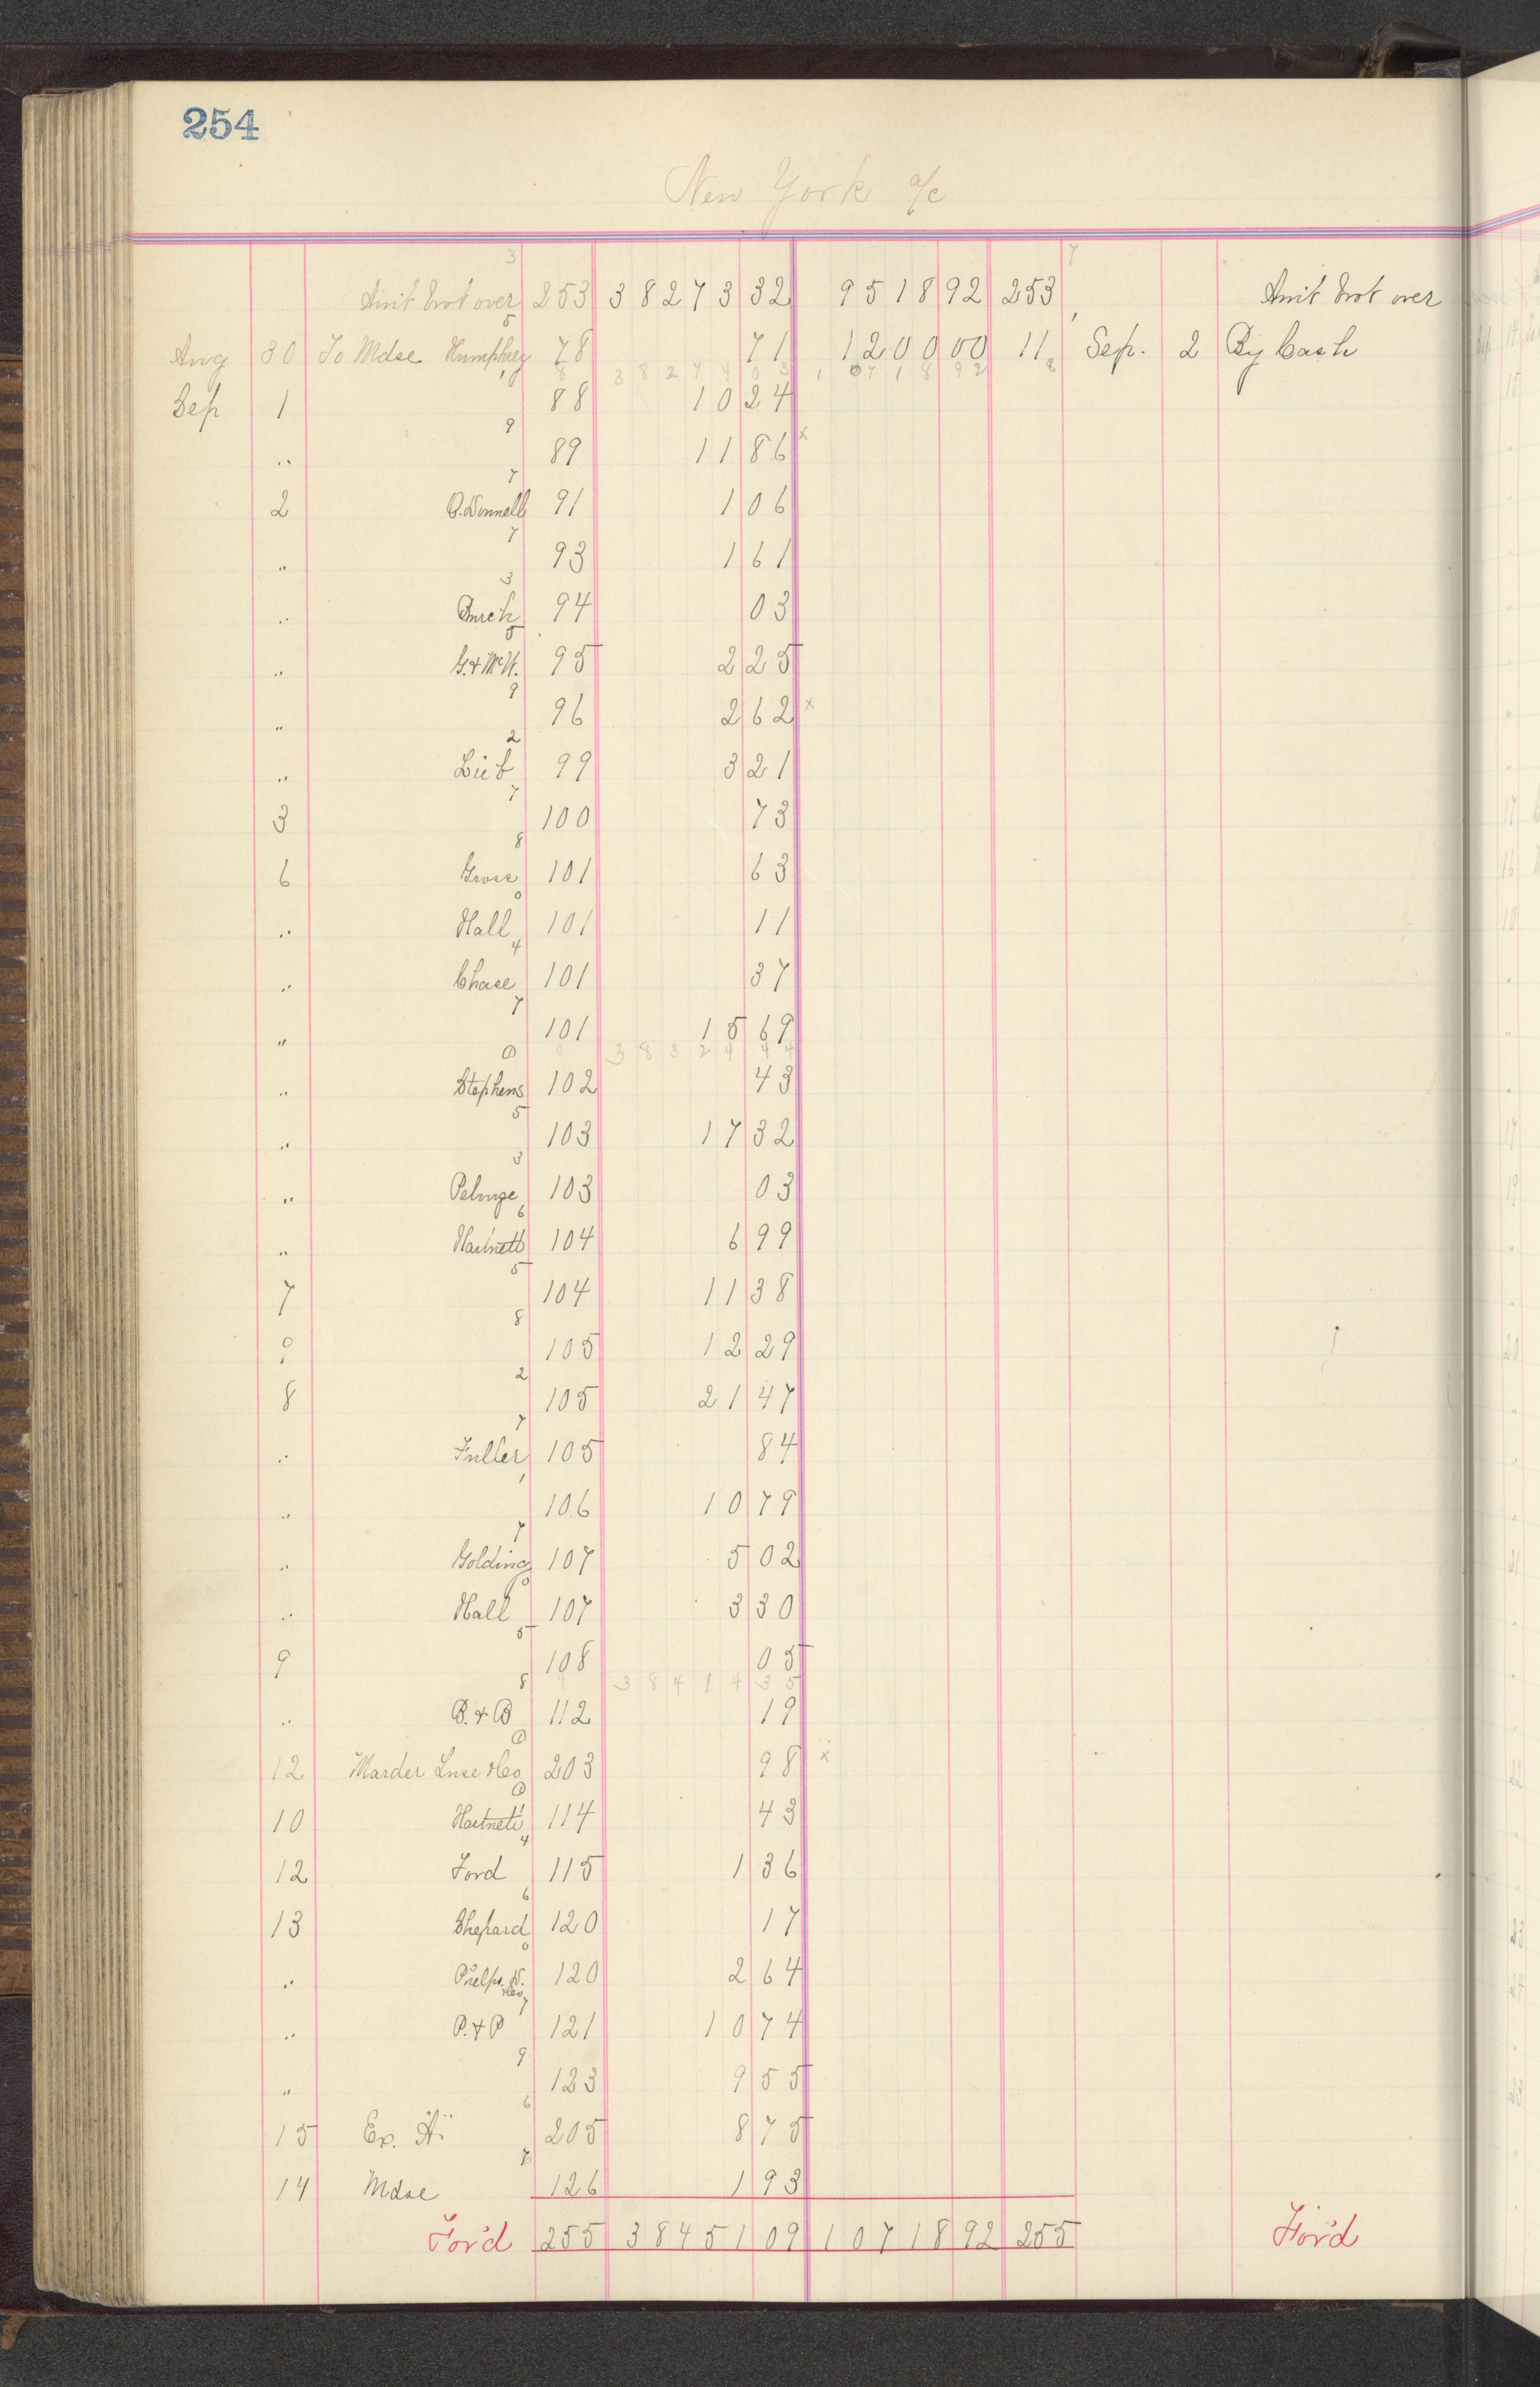 254
New York a/c
Amt brot over 253 38273 32 9518 92 253 Amt brot over
Aug 30 To Mdse Humphrey 78 71 1200 00 11 Sep. 2 By Cash
38274 03 10718 92
Sep 1 88 10 24
" 89 11 86 x
2 O.Donnell 91 1 06
" 93 1 61
" 94 03
" G. & McH. 95 2 25
" 96 2 62 x
" Lieb 99 3 21
3 100 73
6 Gross 101 63
" Hall 101 11
" Chase 101 37
" 101 15 69
38324 44
" Stephens 102 43
" 103 17 32
" Pelouze 103 03
" Hartnett 104 6 99
7 104 11 38
9 105 12 29
8 105 21 47
" Fuller 105 84
" 106 10 79
" Golding 107 5 02
" Hall 107 3 30
9 108 05
38414 35
" B. & B 112 19
12 Marder Luse & Co 203 98 x
10 Hartnett 114 43
12 Ford 115 1 36
13 Shepard 120 17
" Phelps. D. & Co 120 2 64
" P. & P 121 10 74
" 123 9 55
15 Ex. 205 8 75
14 Mdse 126 1 93
For'd 255 38451 09 10718 92 255 For'd